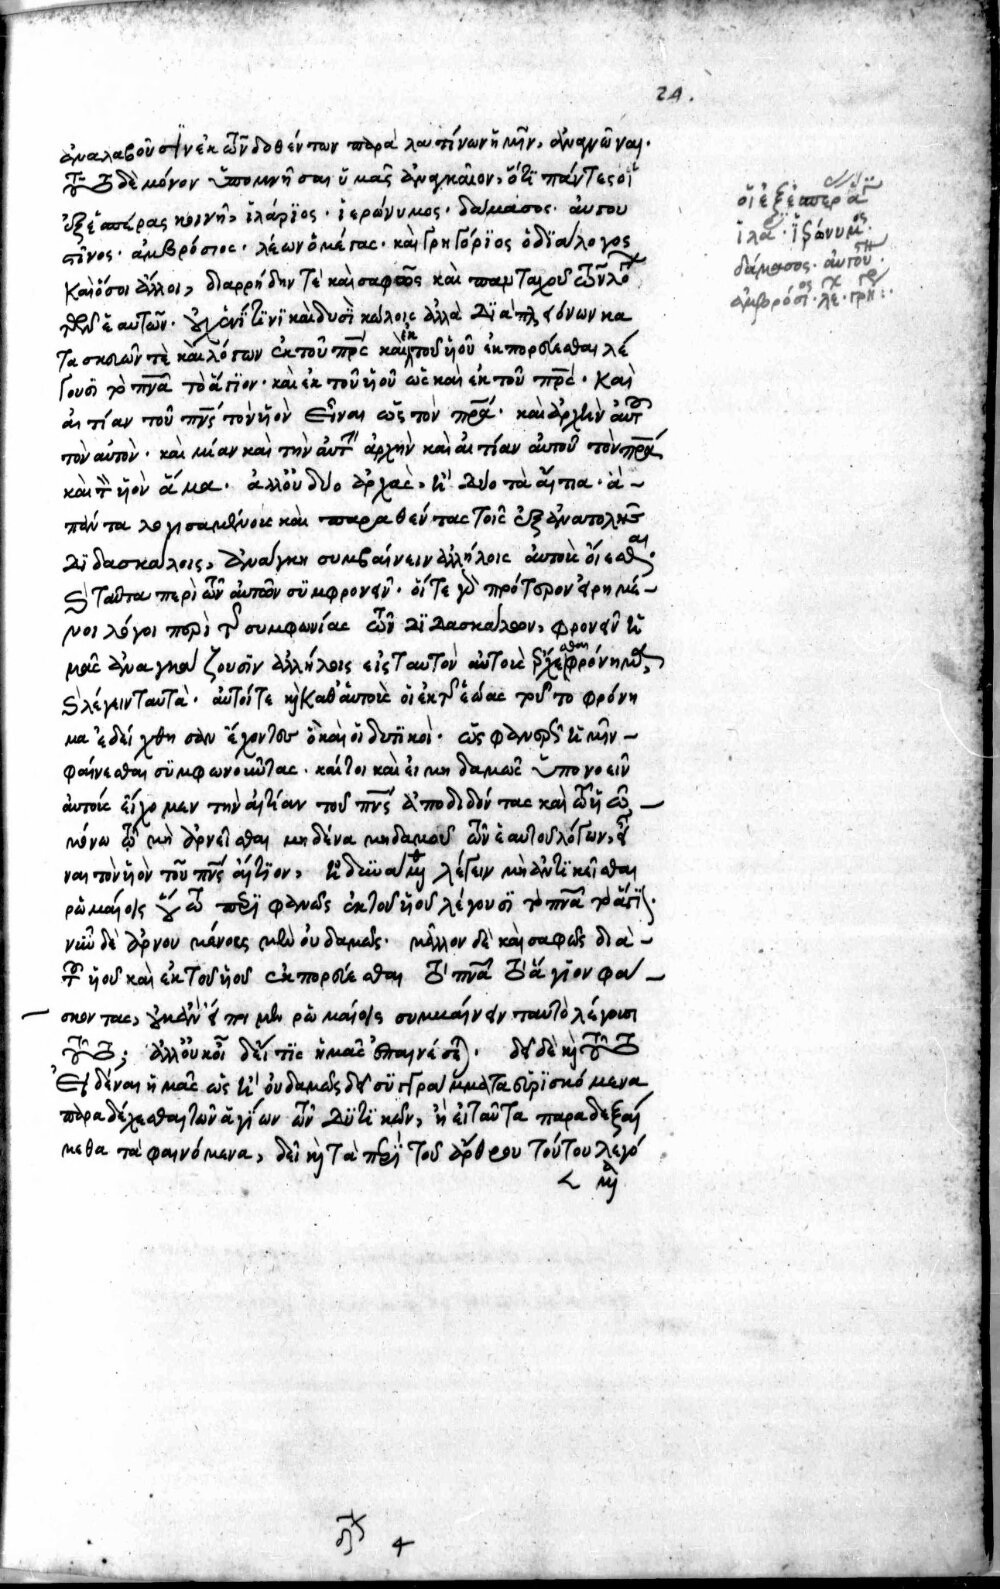 24.
ἀναλαβοῦσιν ἐκ τῶν δοθέντων παρὰ λατίνων ἡμῖν, ἀναγνῶναι.
τοῦτο δὲ μόνον ὑπομνῆσαι ὑμᾶς ἀναγκαῖον, ὅτι πάντες οἱ
ἐξ ἑσπέρας κοινῆ, ἱλάριος. ἱερώνυμος. δάμασος. αὐγου
στῖνος. ἀμβρόσιος. λέων ὁ μέγας. καὶ γρηγόριος ὁ διάλογος
καὶ ὅσοι ἄλλοι, διαρρήδην τὲ καὶ σαφῶς καὶ πανταχοῦ τῶν λό
γων ἑαυτῶν. οὐχ ἑνί τινι καὶ δυσὶ κώλοις ἀλλὰ διὰ πλειόνων κα
τασκευῶν τὲ καὶ λόγων ἐκ τοῦ πρς καὶ ἐκ τοῦ ὑοῦ ἐκπορεύεσθαι λέ
γουσι τὸ πνα τὸ ἅγιον. καὶ ἐκ τοῦ ὑοῦ ὡς καὶ ἐκ τοῦ πρς. καὶ
αἰτίαν τοῦ πνς τὸν ὑὸν εἶναι ὡς τὸν πρα. καὶ ἀρχὴν αὐτοῦ
τὸν αὐτὸν. καὶ μίαν καὶ τὴν αὐτὴν ἀρχὴν καὶ αἰτίαν αὐτοῦ τὸν πρα
καὶ τὸν ὑὸν ἅμα. ἀλλ' οὐ δύο ἀρχὰς, οὐδὲ δύο τὰ αἴτια. ἁ-
πάντα λογισαμένους καὶ παραθέντας τοῖς ἐξ ἀνατολῆς
διδασκάλοις, ἀνάγκη συμβαίνειν ἀλλήλοις αὐτοὺς οἴεσθαι.
καὶ ταῦτα περὶ τῶν αὐτῶν συμφρονεῖν. οἵ τε γὰρ πρότερον εἰρημέ-
νοι λόγοι περὶ τῆς συμφωνίας τῶν διδασκάλων, φρονεῖν ἡ
μᾶς ἀναγκάζουσιν ἀλλήλοις εἰς ταυτὸν αὐτοὺς φρόνημα,
καὶ λέγειν ταυτὰ. αὐτοί τε καὶ καθ' αὑτοὺς οἱ ἐκ τῆς ἕω τοῦτο φρόνη
μα ἐδείχθησαν ἔχοντες ὃ καὶ οἱ δυτικοί. ὡς φανερῶς ἡμῖν-
φαίνεσθαι συμφωνοῦντας. καίτοι καὶ εἰ μηδαμῶς ὑπονοεῖν
αὐτοὺς εἴχομεν τὴν αἰτίαν τοῦ πνς ἀποδιδόντας καὶ τῶ ὑῶ-
μόνω τῶ μὴ ἀρνεῖσθαι μηδένα μηδαμοῦ τῶν ἑαυτοῦ λόγων, εἶ
ναι τὸν ὑὸν τοῦ πνς αἴτιον, λέγειν μὴ ἀντικεῖσθαι
ῥωμαίοις φανερῶς ἐκ τοῦ ὑοῦ λέγουσι τὸ πνα τὸ ἅγιον.
νῦν δὲ ἀρνουμένους μὲν οὐδαμῶς. μᾶλλον δὲ καὶ σαφῶς διὰ-
τοῦ ὑοῦ καὶ ἐκ τοῦ ὑοῦ ἐκπορεύεσθαι τὸ πνα τὸ ἅγιον φά-
σκοντας, ῥωμαίοις συμβαίνειν ταυτὸ λέγουσι
τοῦτο; ἀλλ' οὐκ ἂν τις ἡμᾶς ἐπαινέσει. δεῖ δὲ καὶ τοῦτο
εἰδέναι ἡμᾶς ὡς ἢ οὐδαμῶς δεῖ συγγράμματα εὑρισκόμενα
παραδέχεσθαι τῶν ἁγίων τῶν δυτικῶν, ἢ εἰ ταῦτα παραδεξαί
μεθα τὰ φαινόμενα, δεῖ καὶ τὰ περὶ τοῦ ἄρθρου τούτου λεγό
μενα
οἱ ἐξ ἑσπέρας
ἱλά. ἱερώνυμος.
δάμασος. αὐγουστι.
ἀμβρόσιος. λέ. γρη.
4